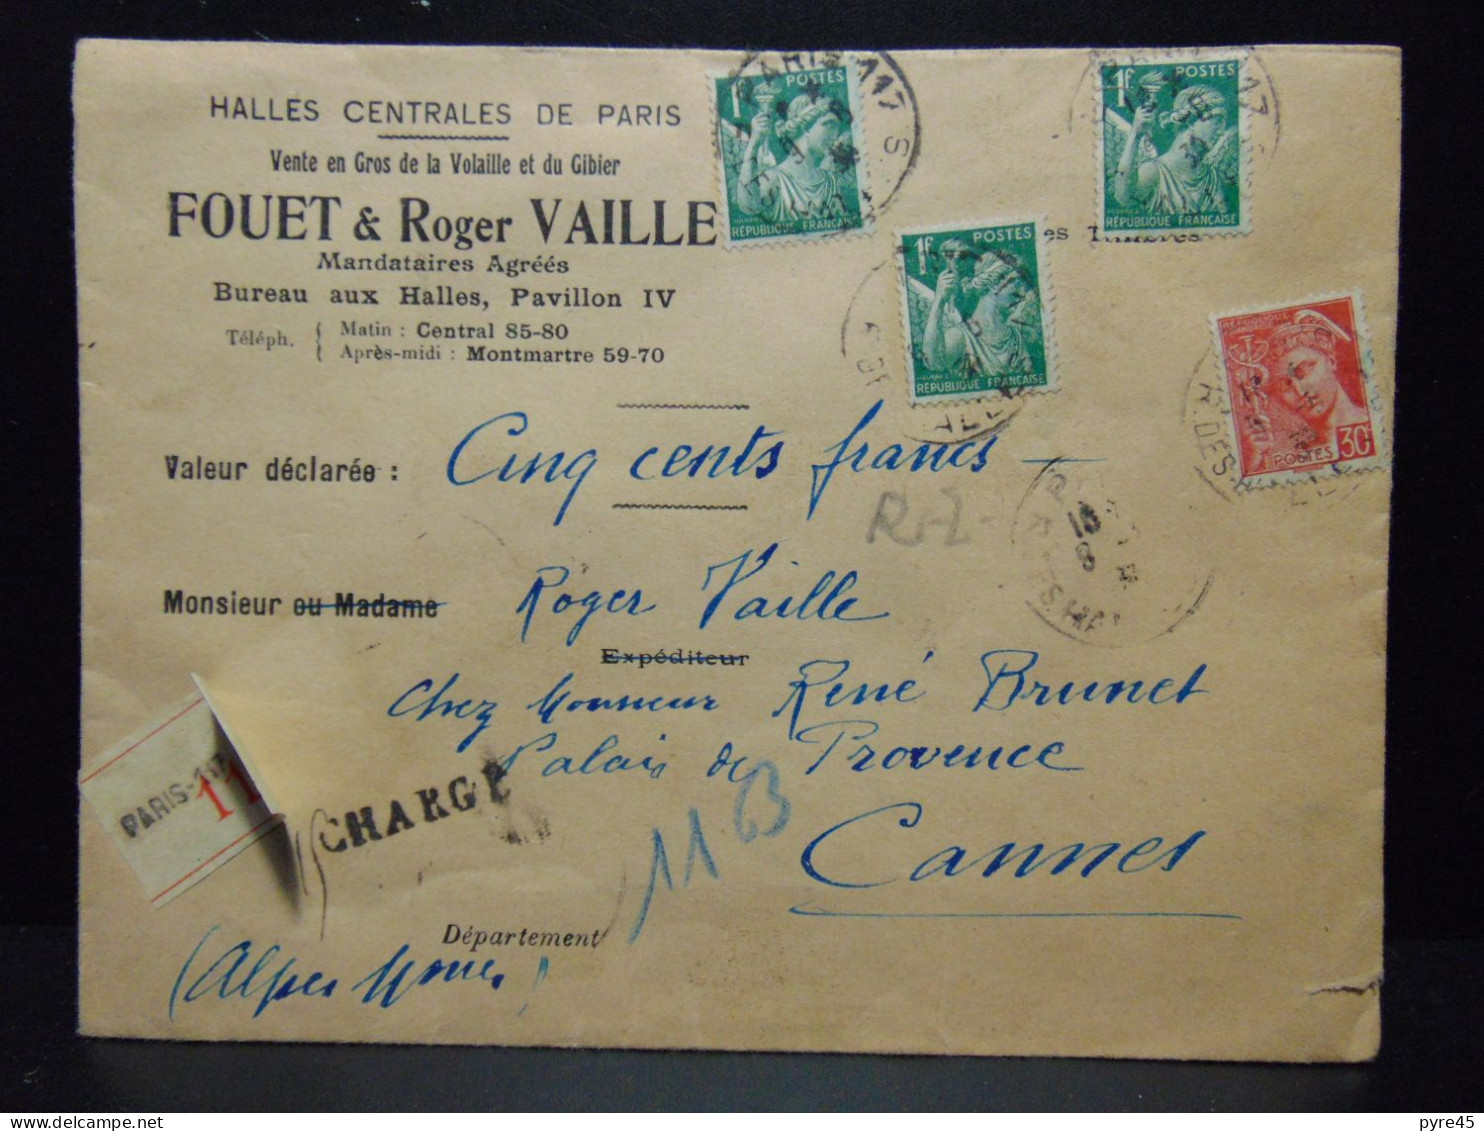 HALLES CENTRALES DE PARIS
Vente en Gros de la Volaille et du Gibier
FOUET & Roger VAILLE
Mandataires Agréés
Bureau aux Halles, Pavillon IV
Téléph. { Matin : Central 85-80
Après-midi : Montmartre 59-70
1F POSTES
RÉPUBLIQUE FRANÇAISE
PARIS 117
1F POSTES
RÉPUBLIQUE FRANÇAISE
117
1F POSTES
RÉPUBLIQUE FRANÇAISE
es Timbres
POSTES 30c
R. DES
Valeur déclarée : Cinq cents francs
Monsieur ou Madame Roger Vaille
Expéditeur
Chez Monsieur René Brunet
Palais de Provence
Cannes
PARIS-
11
CHARGÉ
11 B
Département
(Alpes Mmes)
pyre45